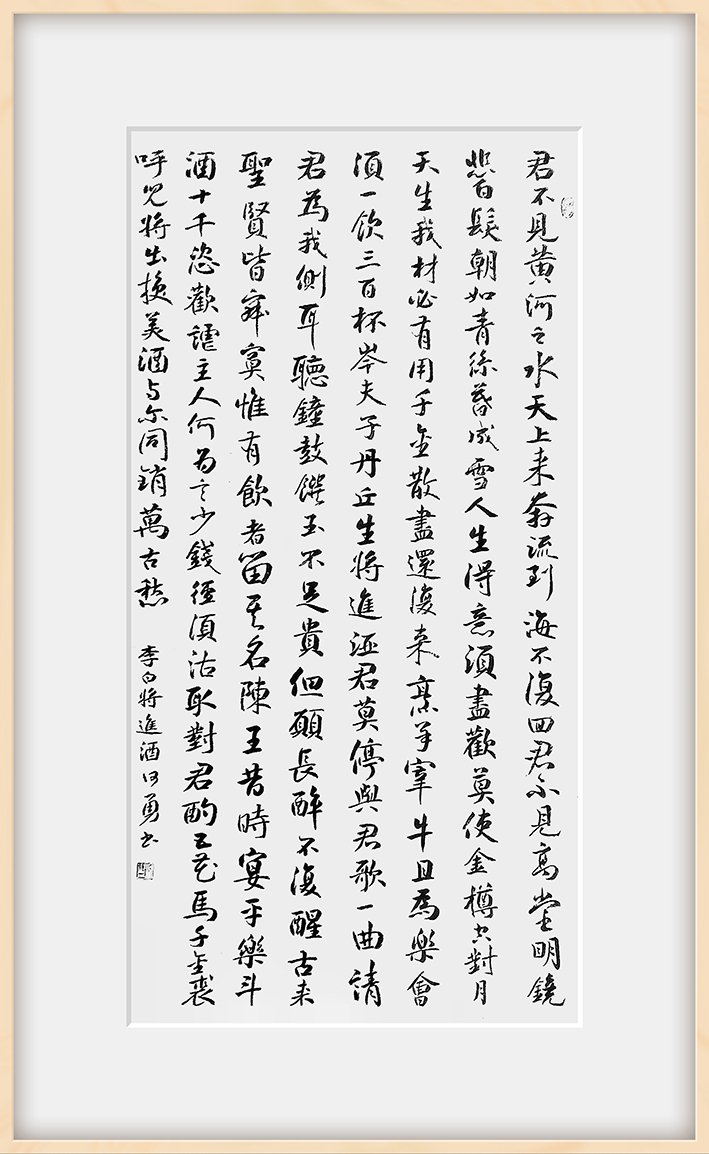 君不見黃河之水天上来奔流到海不復回君不見高堂明鏡
悲白髮朝如青絲暮成雪人生得意須盡歡莫使金樽空對月
天生我材必有用千金散盡還復来烹羊宰牛且為樂會
須一飲三百杯岑夫子丹丘生將進酒君莫停與君歌一曲請
君為我側耳聽鐘鼓饌玉不足貴但願長醉不復醒古来
聖賢皆寂寞惟有飲者留其名陳王昔時宴平樂斗
酒十千恣歡謔主人何為言少錢徑須沽取對君酌五花馬千金裘
呼兒將出換美酒与尔同銷萬古愁 李白將進酒何勇书